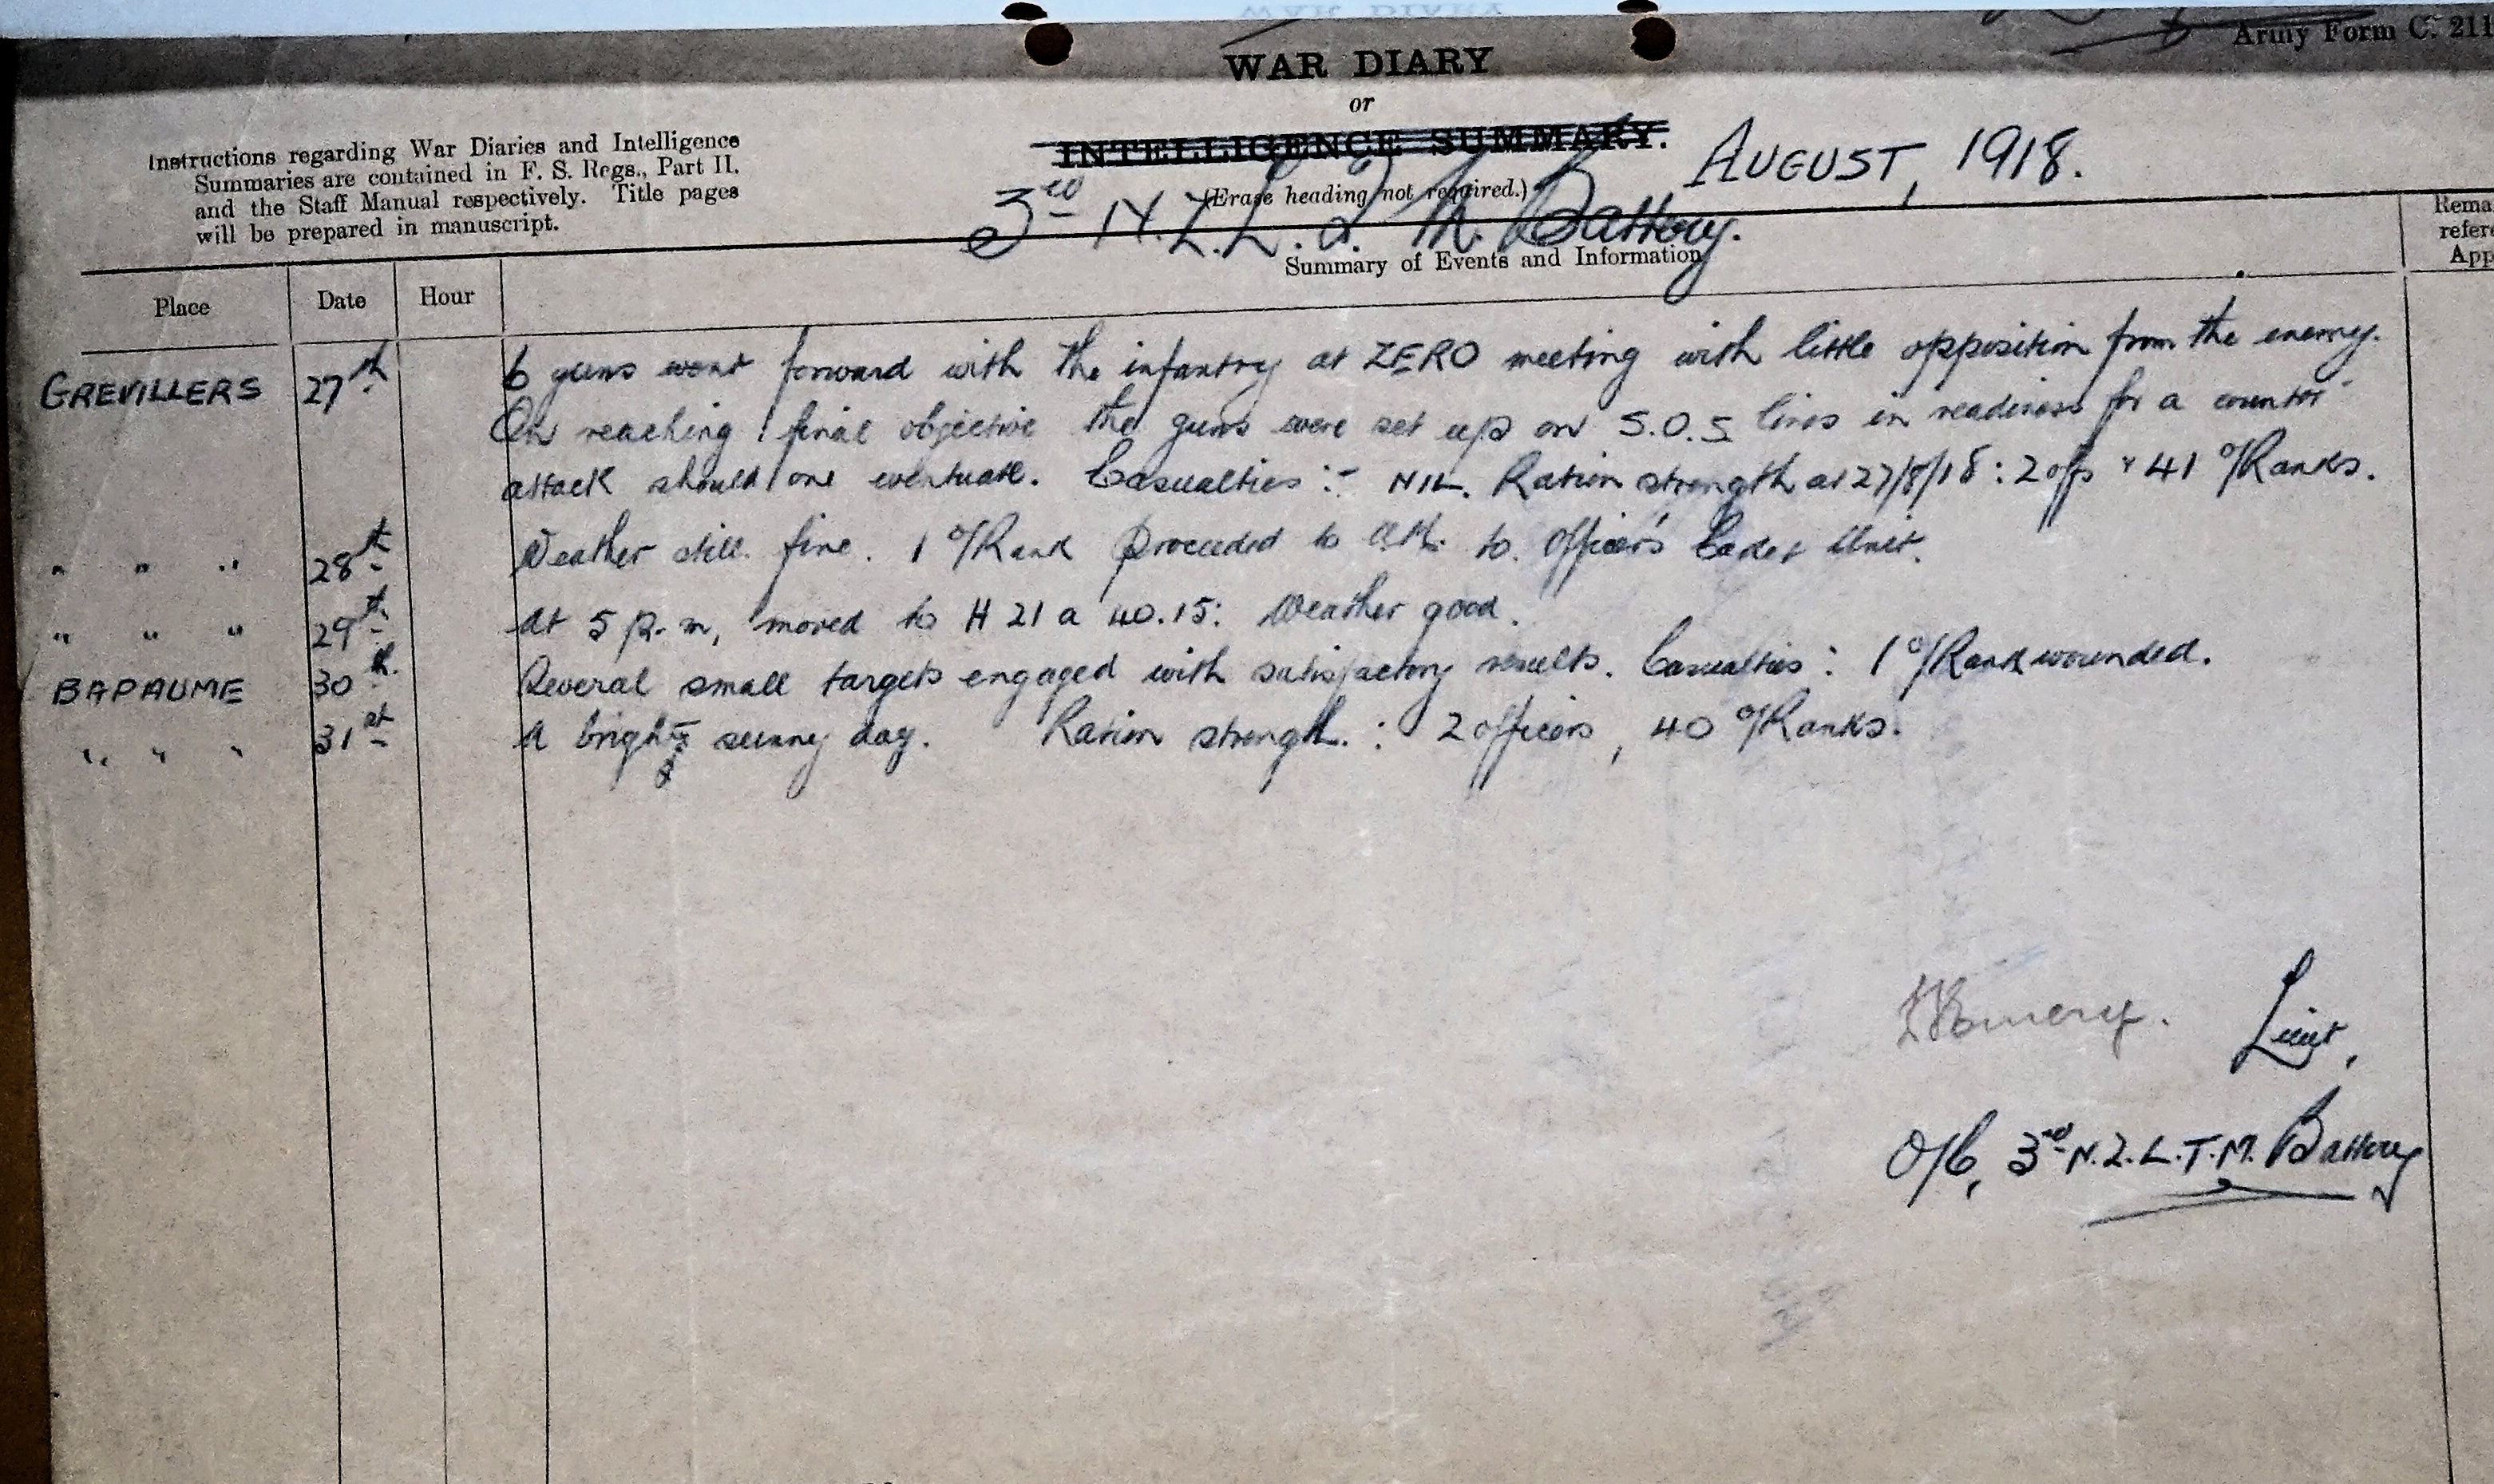 Army Form C. 211
WAR DIARY
or
INTELLIGENCE SUMMARY.
(Erase heading not required.)
AUGUST, 1918.
3rd N.Z.L.T.M. Battery.
Instructions regarding War Diaries and Intelligence
Summaries are contained in F. S. Regs., Part II.
and the Staff Manual respectively. Title pages
will be prepared in manuscript.
Summary of Events and Information
Rema
refere
App
Place Date Hour
GREVILLERS 27th 6 guns went forward with the infantry at ZERO meeting with little opposition from the enemy.
On reaching final objective the guns were set up on S.O.S lines in readiness for a counter
attack should one eventuate. Casualties :- NIL. Ration strength at 27/8/18 : 2 offs " 41 O/Ranks.
" " " 28th Weather still fine. 1 O/Rank proceeded to to Officers' Cadet Unit.
" " " 29th At 5 p.m, moved to H 21 a 40.15: Weather good.
BAPAUME 30th. Several small targets engaged with satisfactory results. Casualties : 1 O/Rank wounded.
" " " 31st A bright sunny day. Ration strength. : 2 officers, 40 O/Ranks.
Emery. Lieut,
O/C, 3rd N.Z.L.T.M. Battery